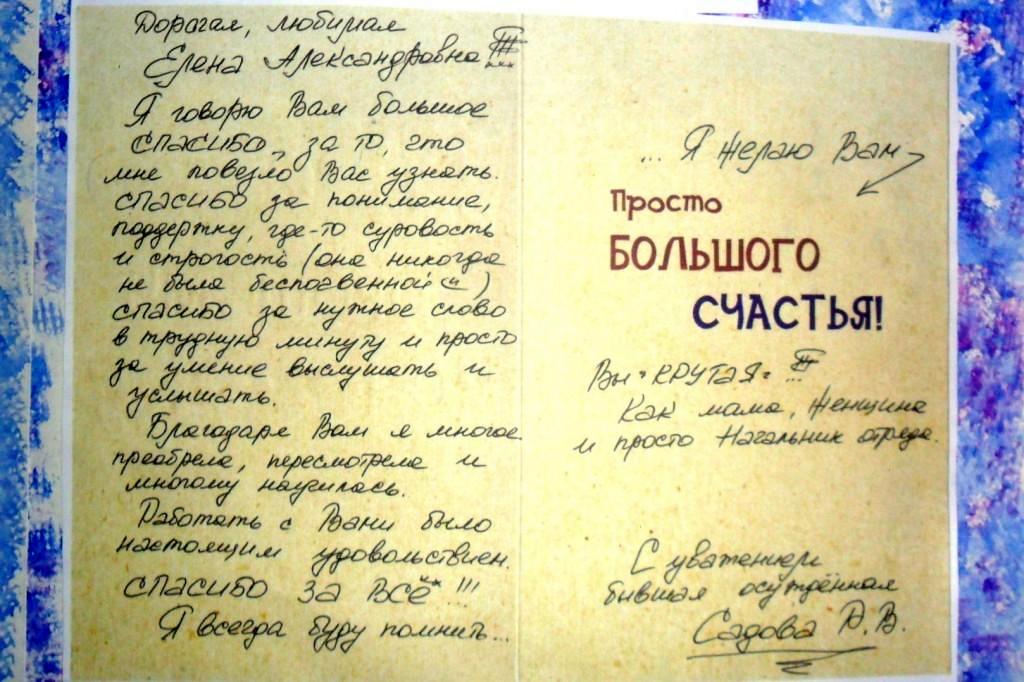 Дорогая, любимая
Елена Александровна!!!
Я говорю Вам большое
спасибо, за то, что
мне повезло Вас узнать.
спасибо за понимание,
поддержку, где-то суровость
и строгость (она никогда
не была беспочвенной)
спасибо за нужное слово
в трудную минуту и просто
за умение выслушать и
услышать.
Благодаря Вам я многое
преобрела, пересмотрела и
многому научилась.
Работать с Вами было
настоящим удовольствием.
спасибо за всё!!!
Я всегда буду помнить...
... Я желаю Вам
Просто
БОЛЬШОГО
СЧАСТЬЯ!
Вы "КРУТАЯ" !!!
Как мама, Женщина
и просто Начальник отряда.
С уважением
бывшая осуждённая
Садова Д.В.